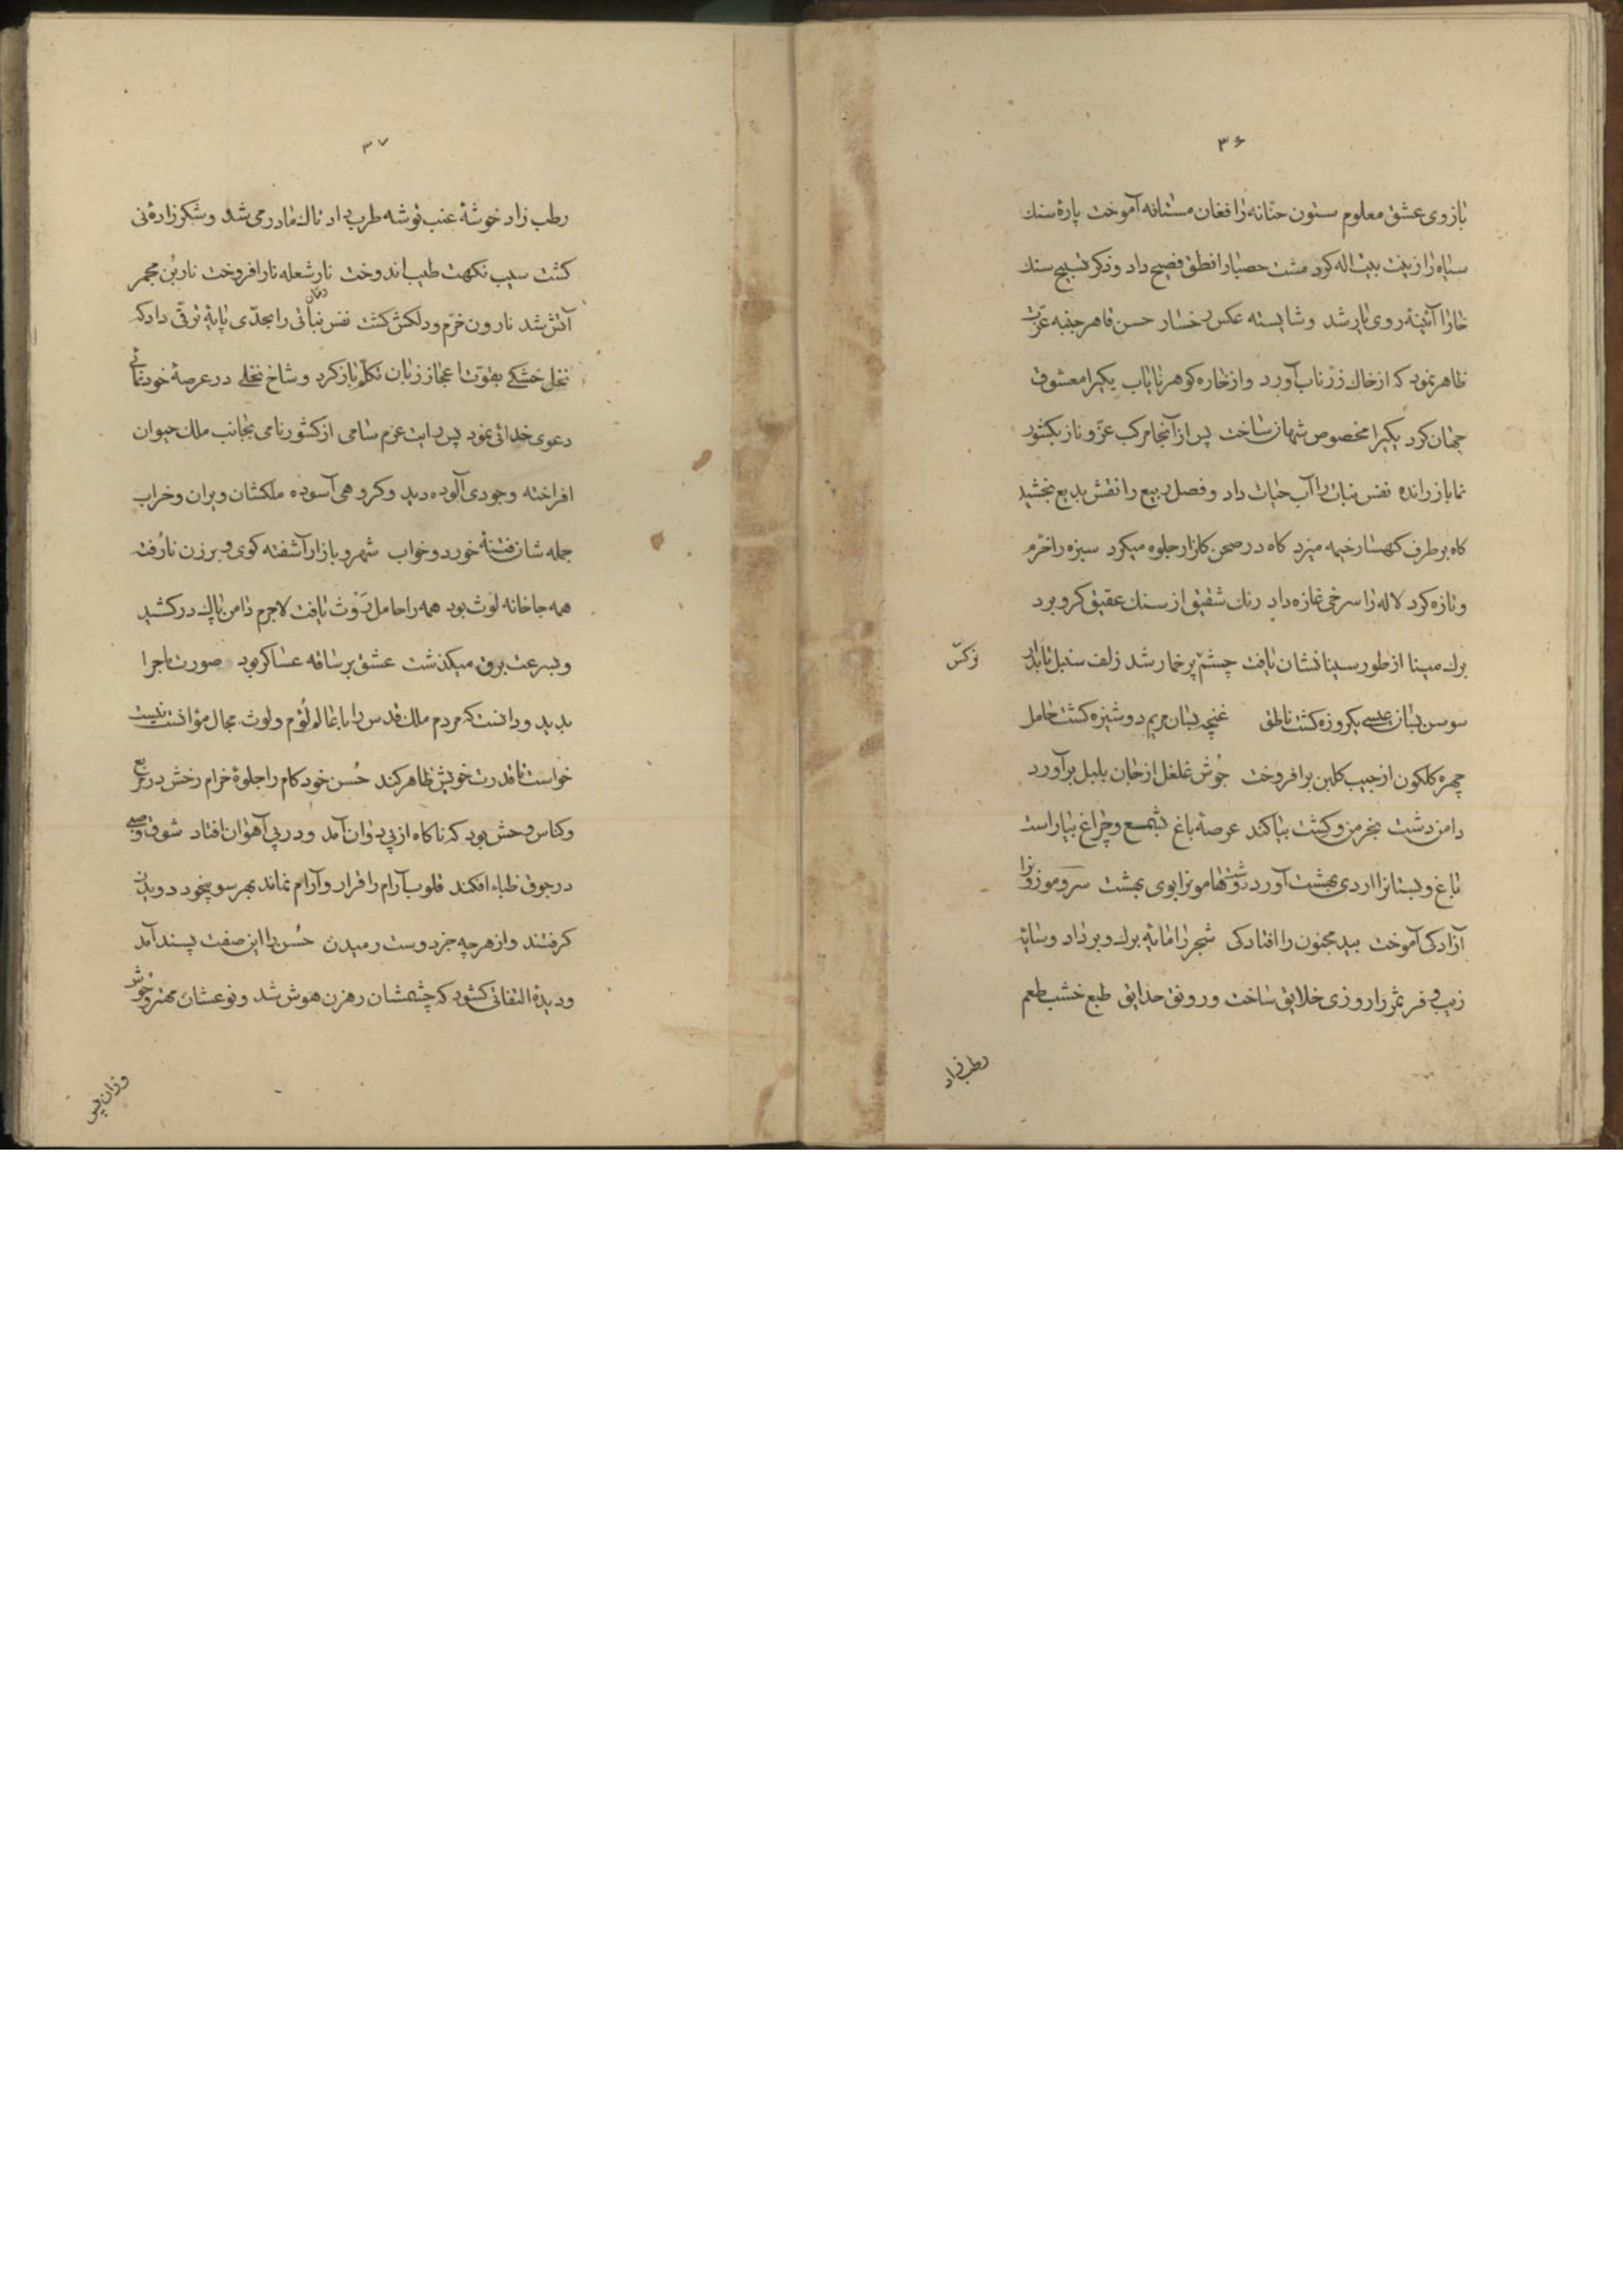 ۳۶
بازوی عشق معلوم ستون حنّانه را فغان مستانه آموخت پارهٔ سنك
سیاه را زینت بیت اله کرد مشت حصبا را نطق فصیح داد و ذکر تسبیح سنك
خارا آئینه روی یار شد و شایسته عکس رخسار حسن قاهر جنبه عزّت
ظاهر نمود که از خاك زر ناب آورد و از خاره کوهر نایاب یکیرا معشوق
جهان کرد یکیرا مخصوص شهان ساخت پس از آنجا مرکب عزّ و ناز بکشور
نما باز رانده نفس نبات را آب حیات داد و فصل ربیع را نقش بدیع بخشید
کاه بر طرف کهسار خیمه میزد کاه در صحن کلزار جلوه میکرد سبزه را خرّم
و تازه کرد لاله را سرخی غازه داد رنك شقیق از سنك عقیق کرو برد
برك مینا از طور سینا نشان یافت چشم پر خمار شد زلف سنبل تابدار
نرکس
سوسن بسان عیسی یکروزه کشت ناطق غنچه بسان مریم دوشیزه کشت حامل
چهره کلکون از جیب کلبن برافروخت جوش غلغل از جان بلبل برآورد
دامن دشت بخرمن و کشت بیاکند عرصهٔ باغ بشمع و چراغ بیاراست
باغ و بستانرا اردی بهشت آورد دشت و هامونرا بوی بهشت سرو موزونرا
آزادکی آموخت بید مجنون را افتادکی شجر را مایهٔ برك و بر داد و سایهٔ
زیب و فر ثمر را روزی خلایق ساخت و رونق حدایق طبع خشب طعم
رطب زاد
۳۷
رطب زاد خوشهٔ عنب توشه طرب داد تاك مادر می شد و شکر زادهٔ نی
کشت سیب نکهت طیب اندوخت نار شعله نار افروخت ناربُن مجمر
آتش شد نارون خرّم و دلکش کشت نفس نباتی را بحدّی پایهٔ ترقّی داد که
نخل خشکی بقوّت اعجاز زبان تکلّم باز کرد و شاخ نخلی در عرصهٔ خودنمائی
دعوی خدائی نمود پس رایت عزم سامی از کشور نامی بجانب ملك حیوان
افراخته وجودی آلوده دید و کروهی آسوده ملکشان ویران و خراب
جمله شان فتنهٔ خورد و خواب شهر و بازار آشفته کوی و برزن نارُفته
همه جا خانه لَوث بود همه را حامل رَوث یافت لاجرم دامن پاك در کشید
و بسرعت برق میکذشت عشق بر ساقه عساکر بود صورت ماجرا
بدید و دانست که مردم ملك قدس را با عالم لُؤم و لوث مجال مؤانست نیست
خواست تا قدرت خویش ظاهر کند حُسن خودکام را جلوهٔ خرام رخش در مربع
و کناس وحش بود که ناکاه از پی دوان آمد و در پی آهوان افتاد شوق وصلی
در جوق ظباء افکند قلوب آرام را قرار و آرام نماند بهر سو بیخود دویدن
کرفتند و از هر چه جز دوست رمیدن حُسن را این صفت پسند آمد
و دیدهٔ التفاتی کشود که چشمشان رهزن هوش شد و نوعشان مهتر وحوش
و زان پس